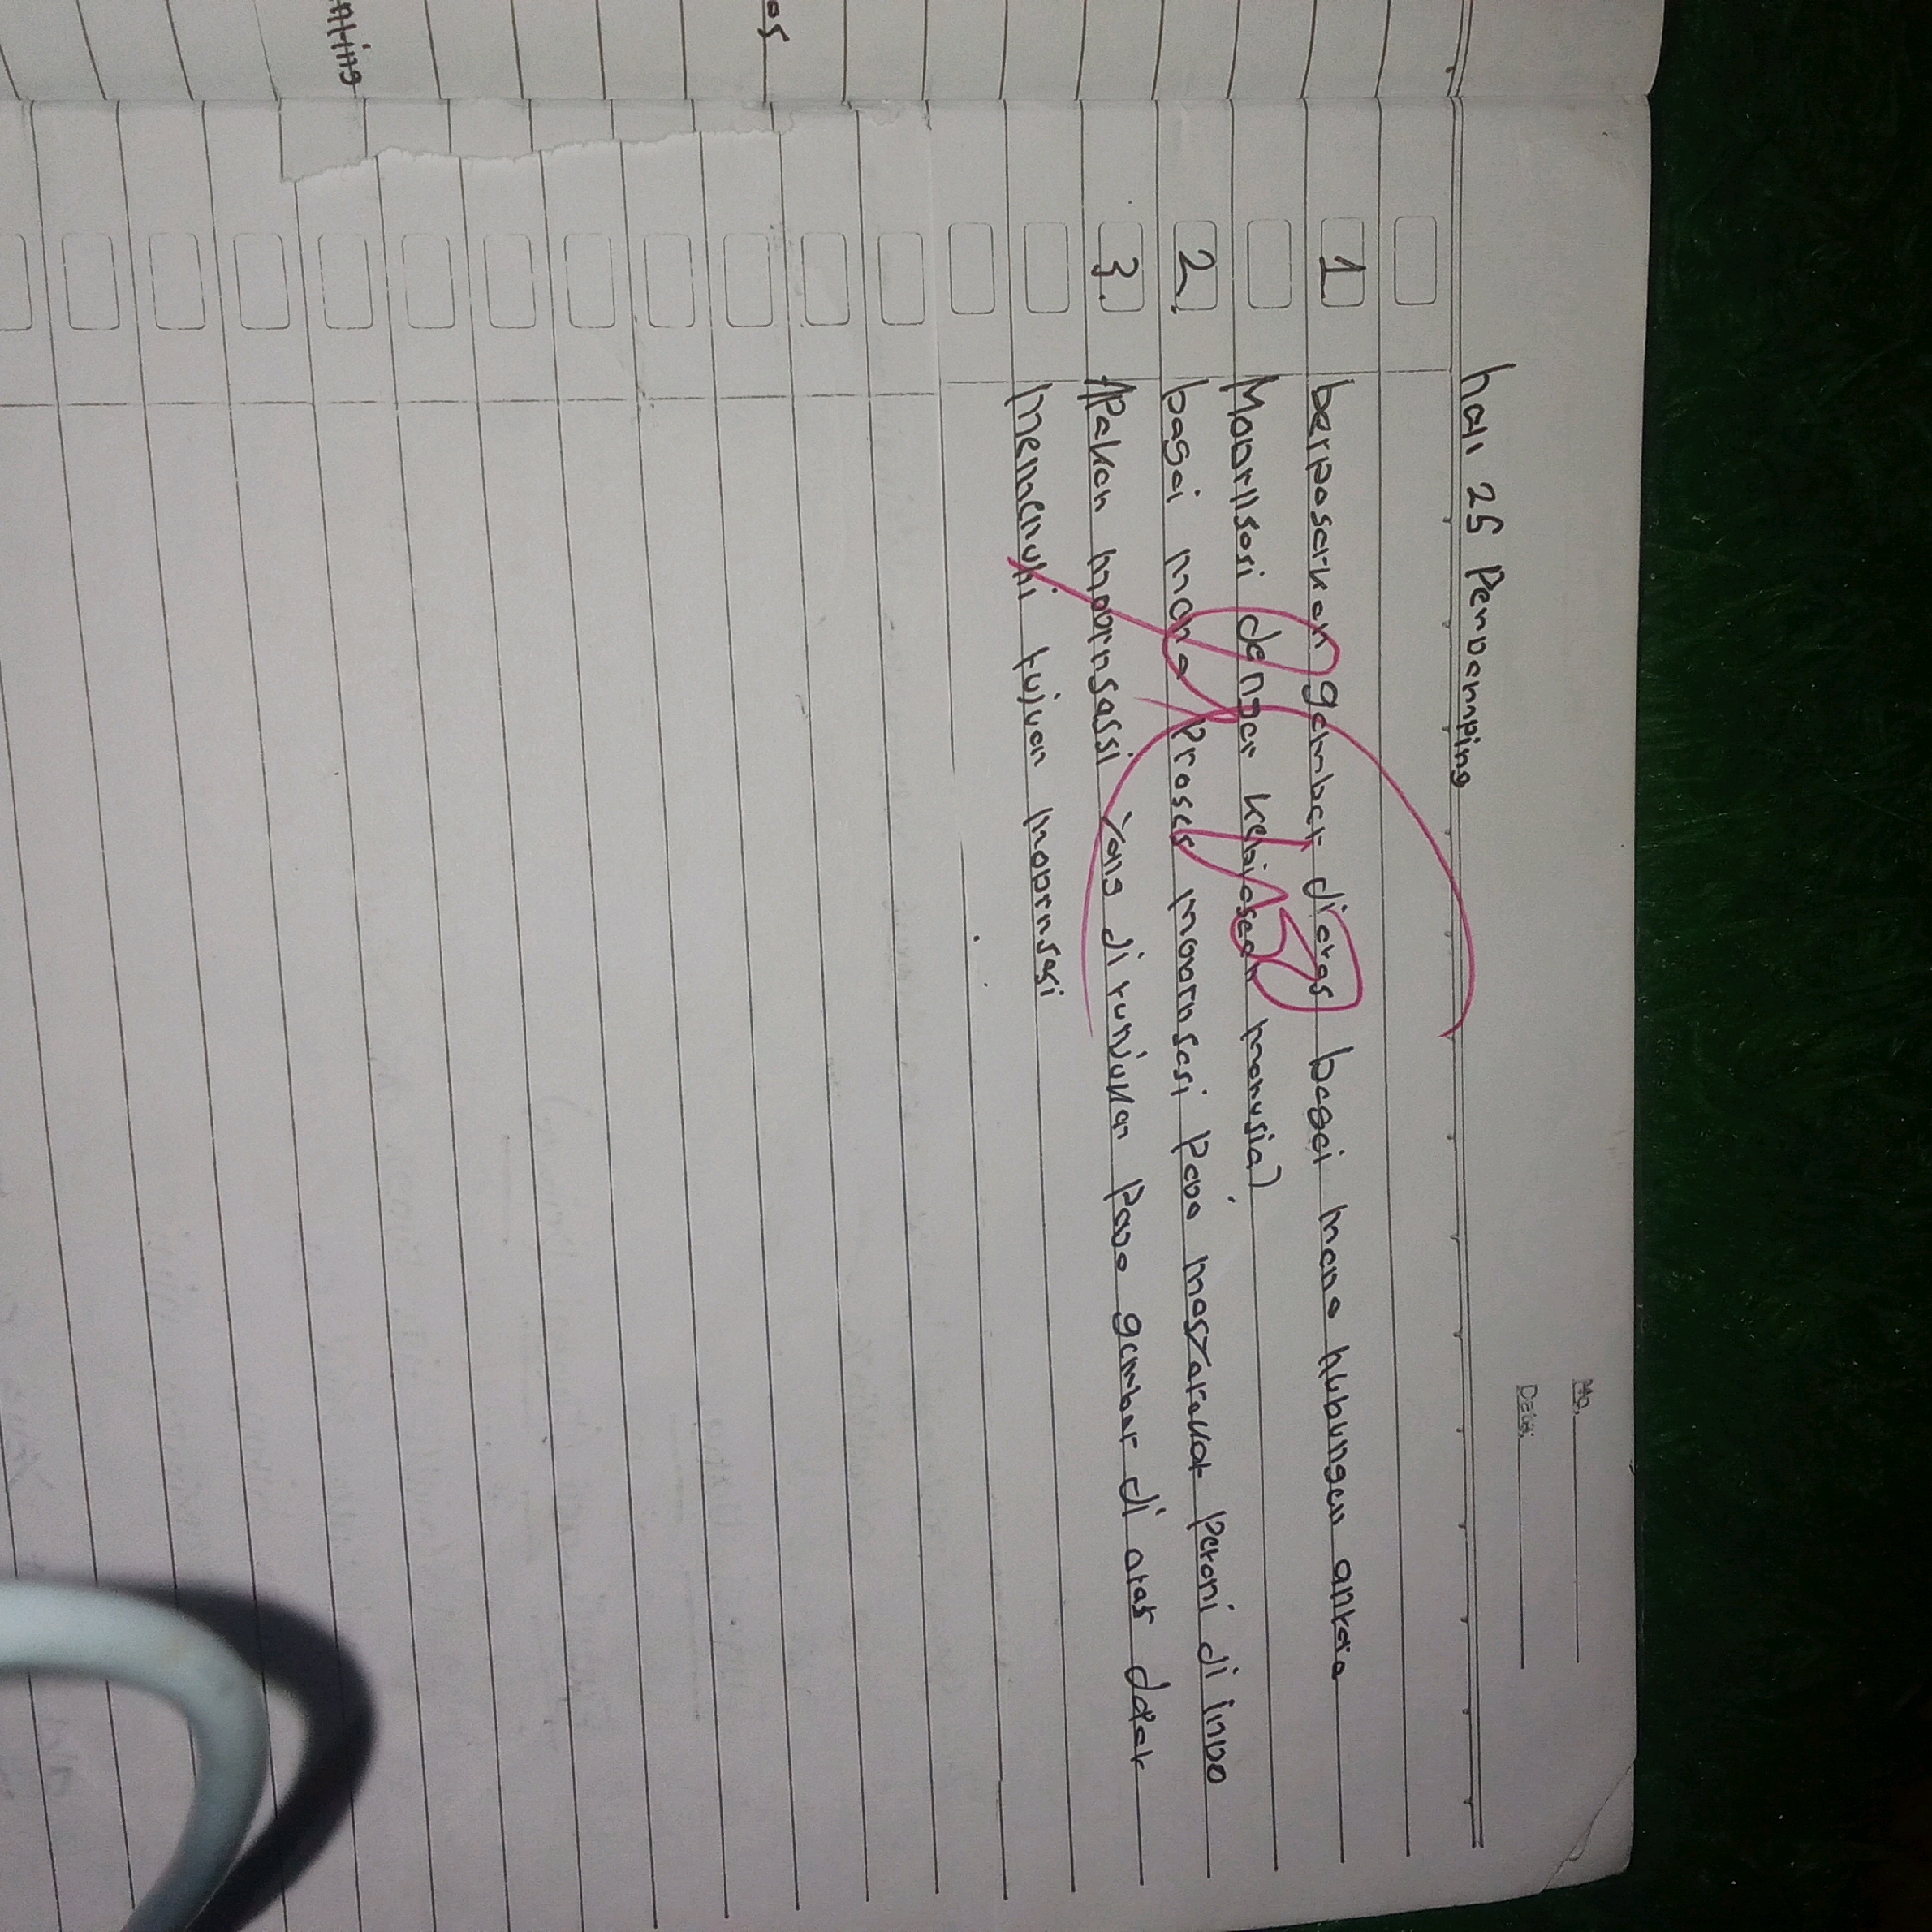 No.
Date:
hal 25 Pendamping
1 berdasarkan gambar diatas bagai mana hubungan antara
Modrnisasi dengan kebiasaan manusia?
2. bagai mana Proses modrnsasi pada masyarakat petani di indo
3. APakah modrnsassi yang di tunjukan pada gambar di atas dapat
memenuhi tujuan modrnsasi